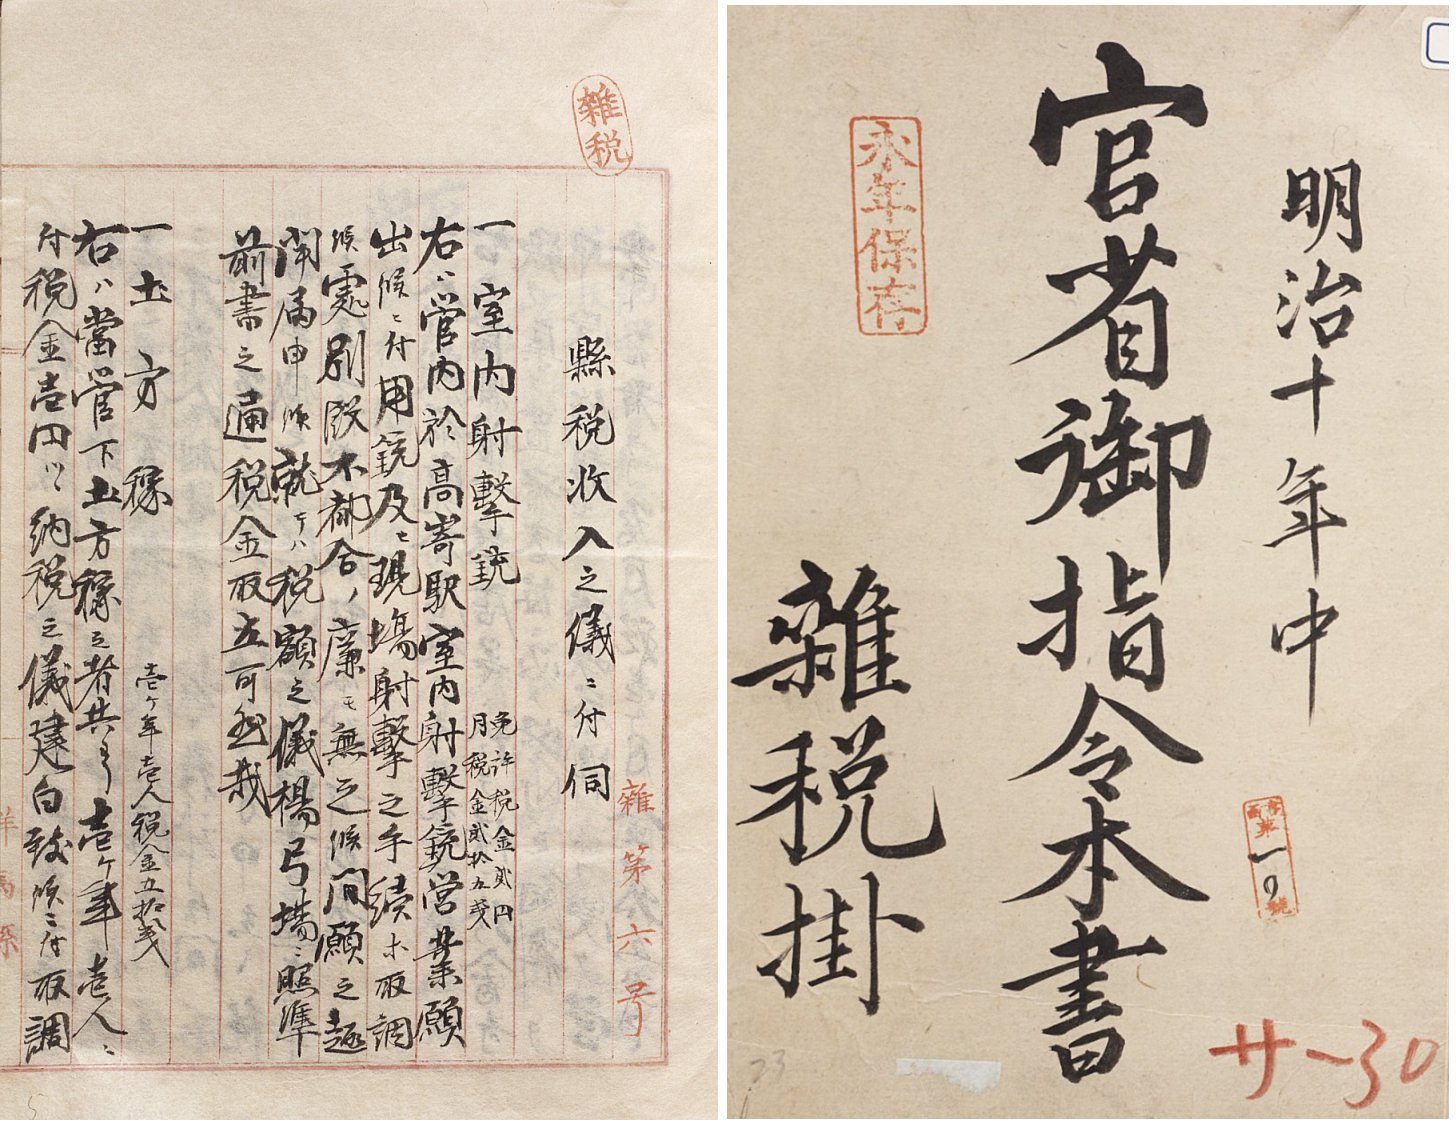 明治十年中
官省御指令本書
雑税掛
永年保存
第一〇號
サー30
雑税
雑第六号
縣税收入之儀ニ付伺
一室内射撃銃
免許税金貳円
月税金貳拾五戔
右ハ管内於高嵜駅室内射撃銃営業願
出候ニ付用銃及ヒ現塲射撃之手續等取調
候處別段不都合ノ廉モ無之候間願之趣
聞届申候就テハ税額之儀楊弓塲ニ照準
前書之通税金取立可然哉
一土方稼
壱ヶ年壱人税金五拾戔
右ハ當管下土方稼之者共ヨリ壱ヶ年壱人ニ
付税金壱円ツヽ納税之儀建白致候ニ付取調